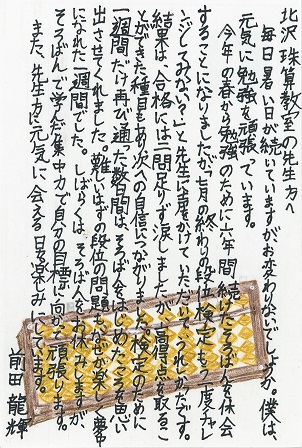 北沢珠算教室の先生方へ
毎日暑い日が続いていますがお変わりないでしょうか。僕は、
元気に勉強を頑張っています。
今年の春から勉強のために六年間続けたそろばんを休会
することになりましたが、七月の終わりの段位検定も「一度チャ
レンジしてみない?」と先生に声をかけていただいてうれしかったです。
結果は、合格には二問足りず涙しましたが、高得点を取るこ
とができた種目もあり次への自信につながりました。検定のために
一週間だけ再び通った数日間は、そろばんをはじめたころを思い
出させてくれました。難しいはずの段位の問題もなぜか楽しく夢中
になれた一週間でした。しばらくは、そろばんをお休みしますが
そろばんで学んだ集中力で自分の目標に向って頑張ります。
また、先生方に元気に会える日を楽しみにしています。
前田龍輝